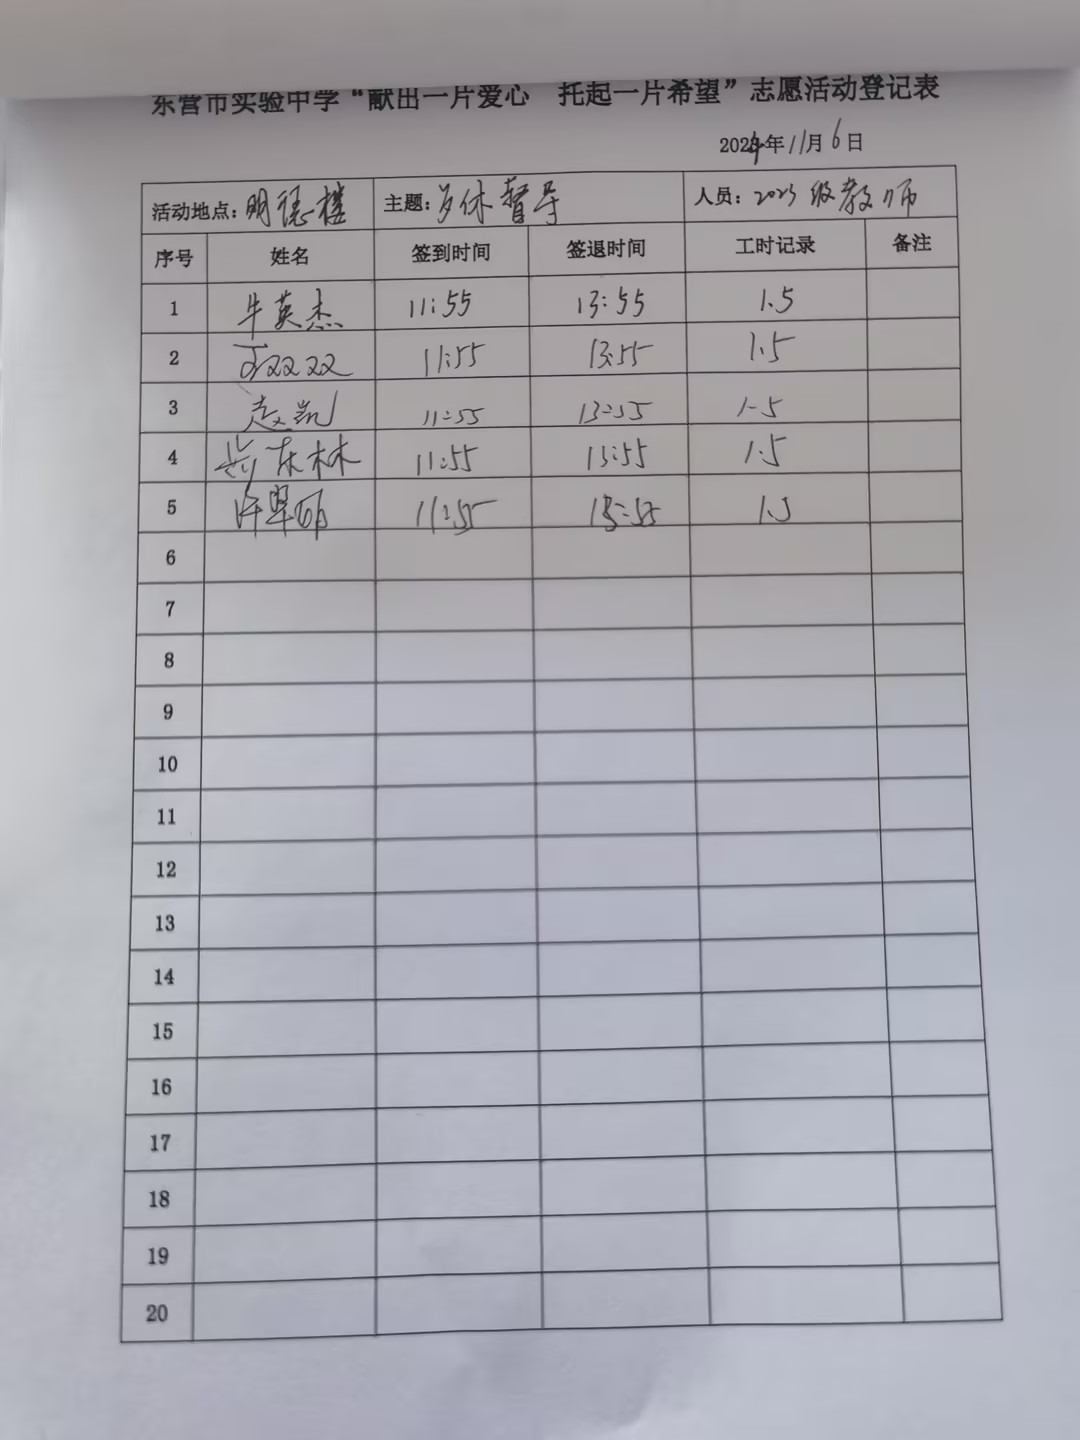 东营市实验中学“献出一片爱心 托起一片希望”志愿活动登记表
2024年11月6日
活动地点：明德楼 主题：午休督导 人员：2023级教师
序号 姓名 签到时间 签退时间 工时记录 备注
1 牛英杰 11:55 13:55 1.5
2 双双 11:55 13:55 1.5
3 赵凯 11:55 13:55 1.5
4 东林 11:55 13:55 1.5
5 许 11:55 13:55 1.5
6
7
8
9
10
11
12
13
14
15
16
17
18
19
20